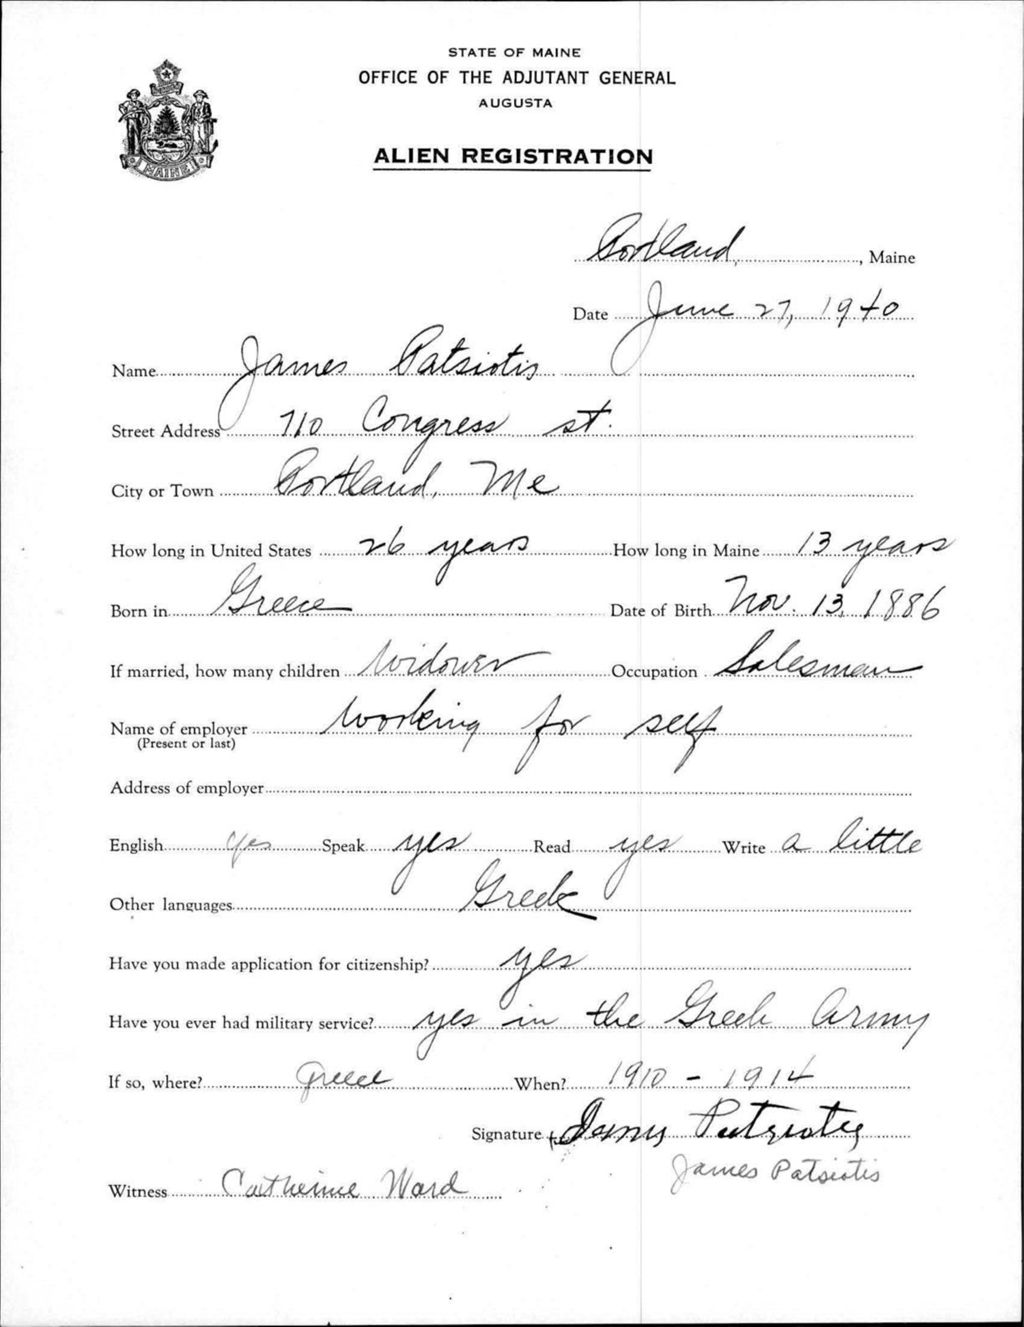 STATE OF MAINE
OFFICE OF THE ADJUTANT GENERAL
AUGUSTA
ALIEN REGISTRATION
MAINE
Portland, Maine
Date June 27, 1940
Name James Patsiotis
Street Address 710 Congress st.
City or Town Portland, Me
How long in United States 26 years How long in Maine 13 years
Born in Greece Date of Birth Nov. 13, 1886
If married, how many children Widower Occupation Salesman
Name of employer working for self
(Present or last)
Address of employer
English yes Speak yes Read yes Write a little
Other languages Greek
Have you made application for citizenship? yes
Have you ever had military service? yes in the Greek Army
If so, where? Greece When? 1910 - 1914
Signature James Patsiotis
James Patsiotis
Witness Catherine Ward